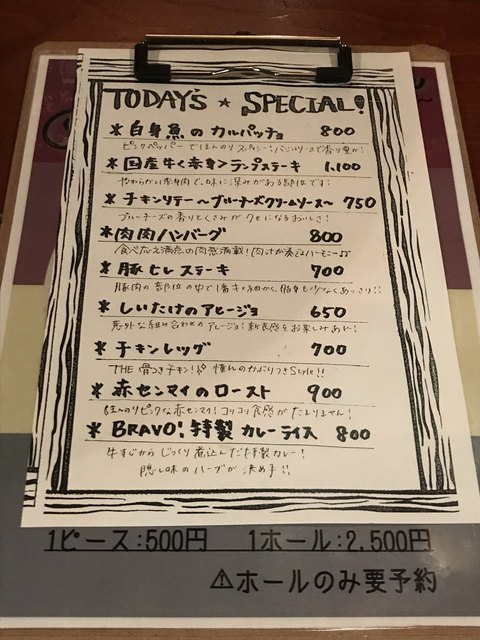 TODAY'S ★ SPECIAL!
* 白身魚のカルパッチョ 800
ピンクペッパーでほんのりスパイシー!バジルソースで香り豊か!
* 国産牛<赤身>ランプステーキ 1,100
やわらかい赤身肉で、味に深みがある部位です!
* チキンソテー〜ブルーチーズクリームソース〜 750
ブルーチーズの香りとくさみがクセになるおいしさ!
* 肉肉ハンバーグ 800
食べごたえ満点の肉感満載!肉汁が奏るハーモニー♫
* 豚ヒレステーキ 700
豚肉の部位の中で1番キメ細かく、脂身も少なくあっさり!!
* しいたけのアヒージョ 650
意外な組み合わせのアヒージョ!新食感をお楽しみあれ!
* チキンレッグ 700
THE 骨つきチキン! 憧れのかぶりつきStyle!!
* 赤センマイのロースト 900
ほんのりピンクな赤センマイ!コリコリ食感がたまりません!
* BRAVO!特製カレーライス 800
牛すじからじっくり煮込んだ特製カレー!
隠し味のハーブが決め手!!
1ピース:500円 1ホール:2,500円
⚠ホールのみ要予約